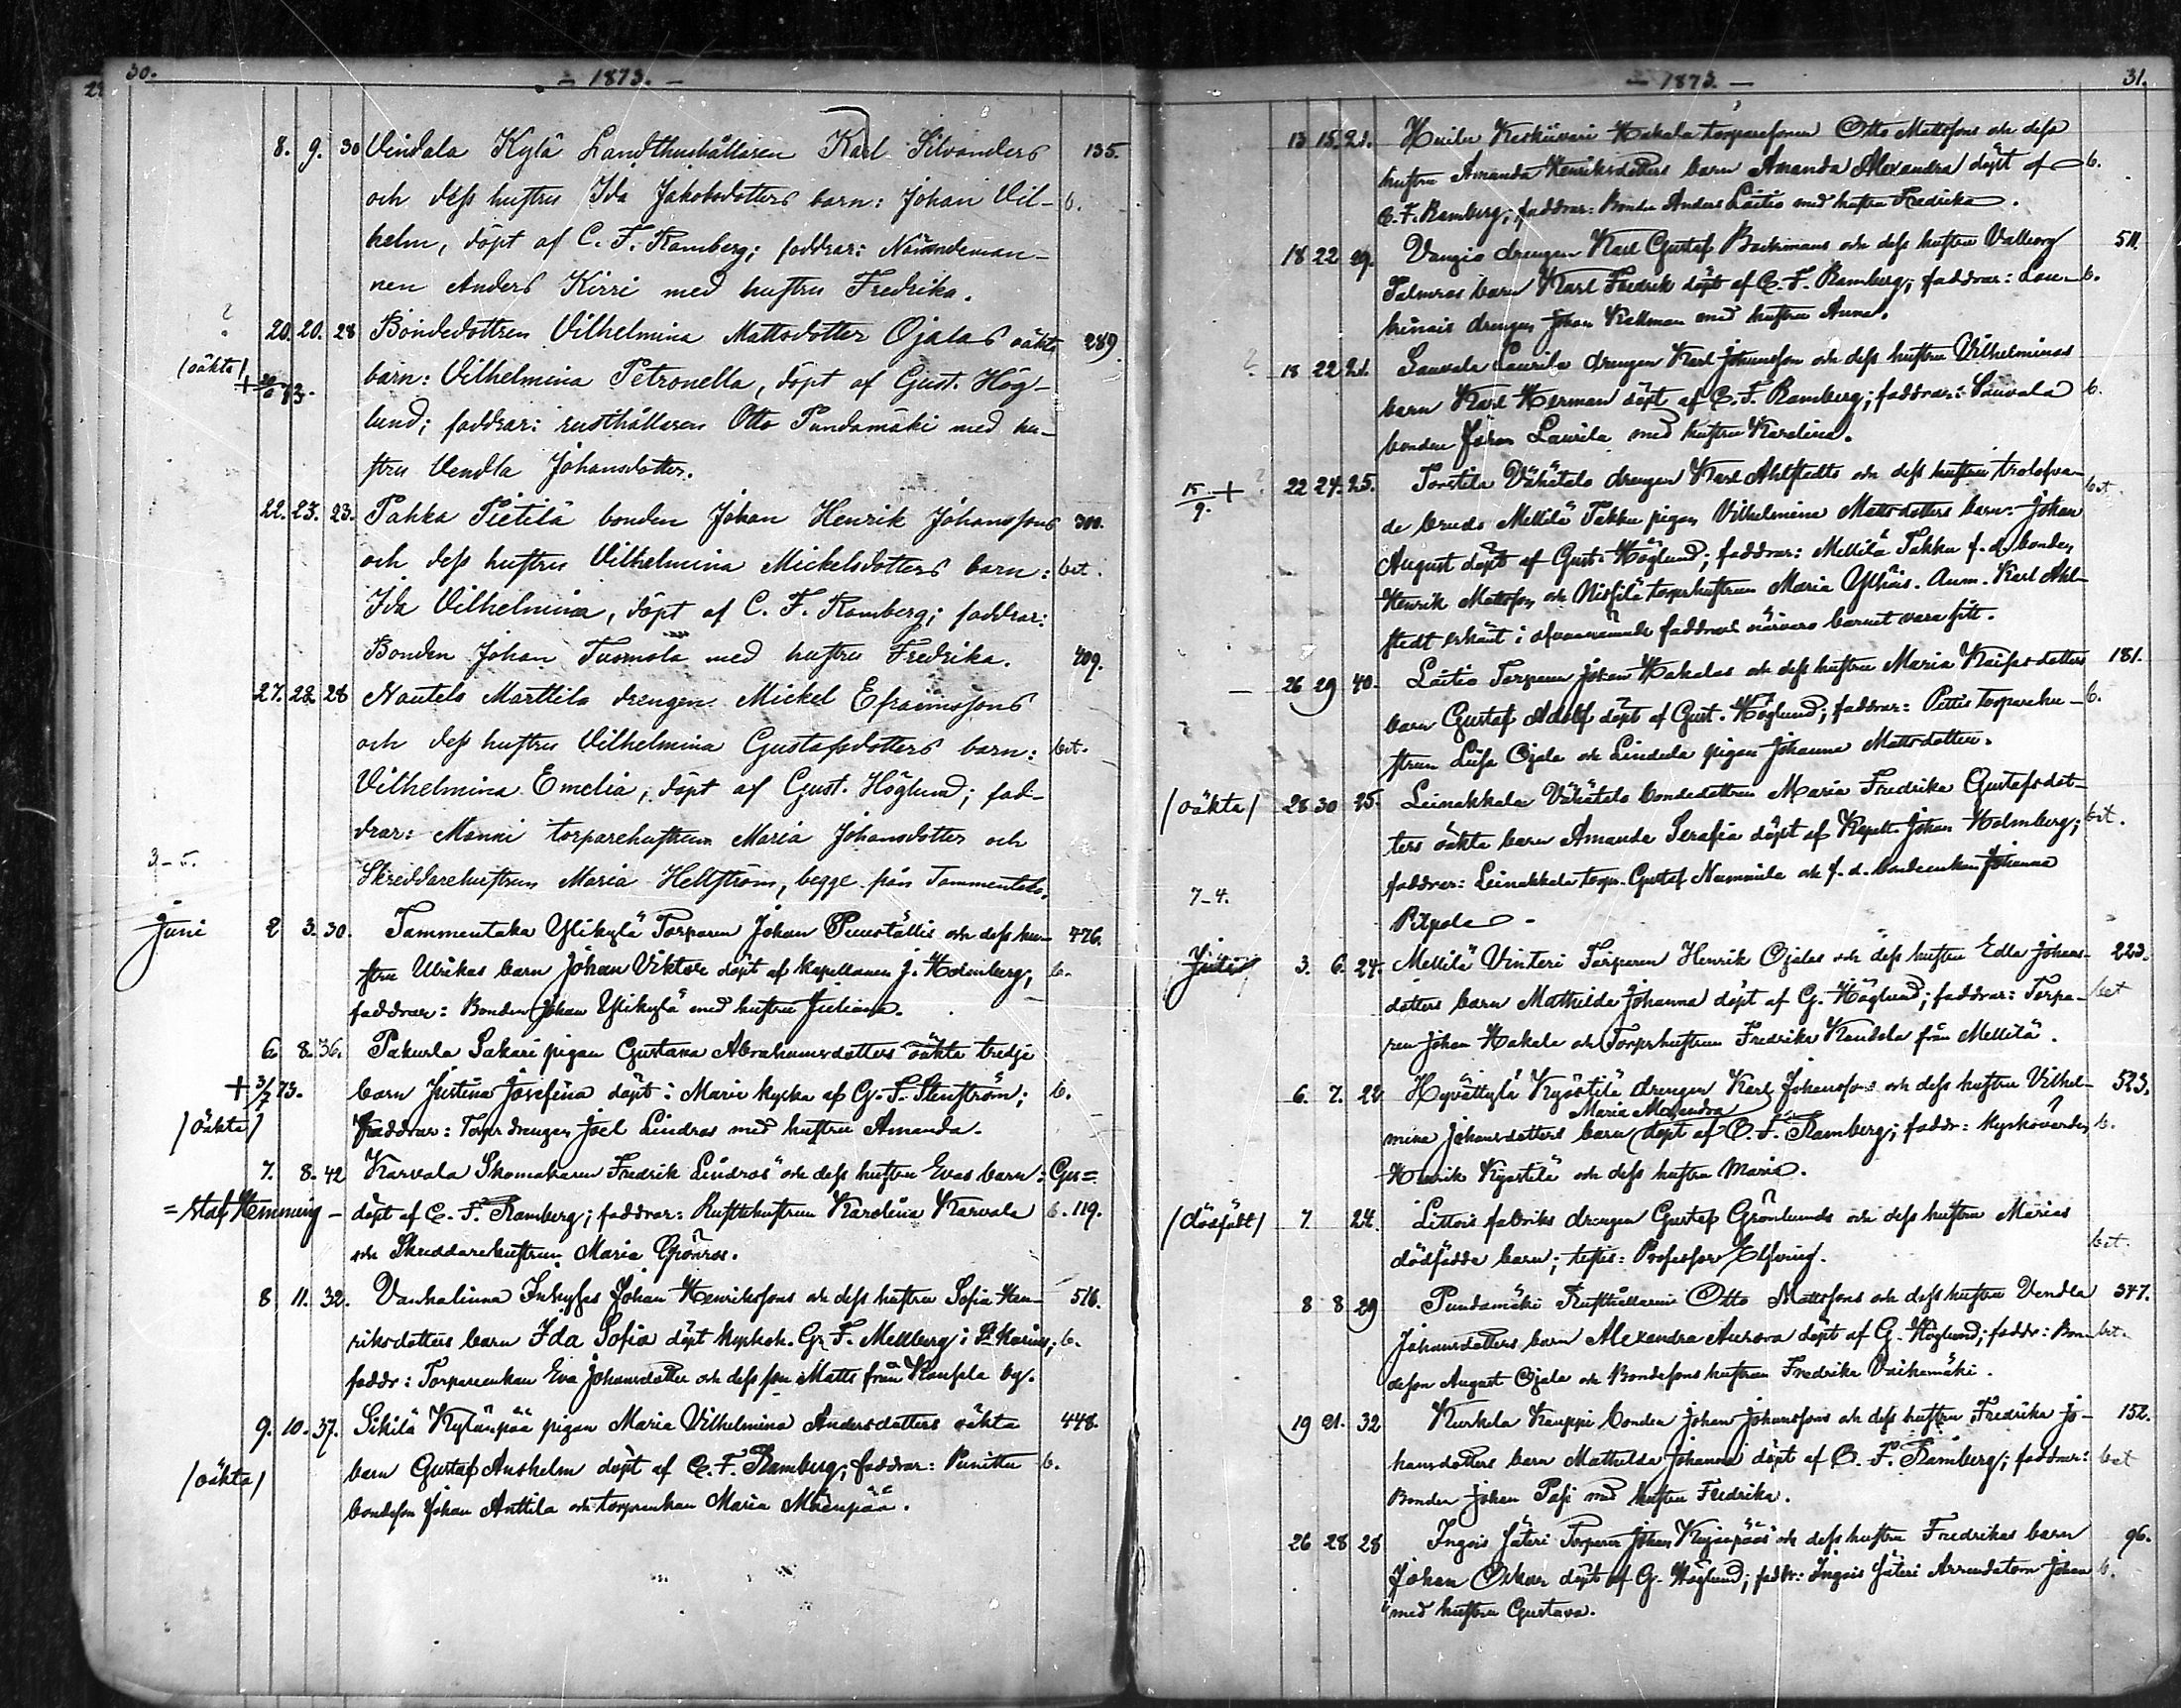 30.
- 1873. -
8. 9. 30 Vindala Kylä Landthushållaren Karl Silvanders 135.
och dess hustrus Ida Jakobsdotters barn: Johan Vil- b.
helm, döpt af C. F. Ramberg; faddrar: Nämndeman-
nen Anders Kirri med hustru Fredrika.
?
20. 20. 28 Bondedottren Vilhelmina Mattsdotter Ojalas oäkta 289.
(oäkta)
barn: Vilhelmina Petronella, döpt af Gust. Hög-
lund; faddrar: rusthållaren Otto Pundamäki med hu-
stru Vendla Johansdotter.
22. 23. 23. Pahka Pietilä bonden Johan Henrik Johanssons 300.
och dess hustrus Vilhelmina Mickelsdotters barn: bet.
Ida Vilhelmina, döpt af C. F. Ramberg; faddrar:
Bonden Johan Tuomola med hustru Fredrika.
27. 28. 28 Nautela Marttila drengen Mickel Efraimssons 409.
och dess hustrus Vilhelmina Gustafsdotters barn: bet.
Vilhelmina Emelia, döpt af Gust. Höglund; fad-
drar: Manni torparehustrun Maria Johansdotter och
3-5.
Skreddarehustrun Maria Hellström, begge från Tammentaka.
Juni 2 3. 30. Tammentaka Ylikylä Torparen Johan Punställis och dess hu- 476.
strus Ulrikas barn Johan Viktor döpt af Kapellanen J. Holmberg; b.
faddrar: Bonden Johan Ylikylä med hustru Juliana.
6. 8. 36. Pakurla Sakari pigan Gustava Abrahamsdotters oäkta tredje
+ 3/7 73. barn Justina Josefina döpt i Marie kyrka af G. S. Stenström; b.
(oäkta) faddrar: Torpr drengen Joel Lindros med hustru Amanda.
7. 8. 42 Karvala Skomakaren Fredrik Lindros' och dess hustru Evas barn: Gus=
=staf Hemming - döpt af C. F. Ramberg; faddrar: Rusthhustrun Karolina Karvala b. 119.
och Skreddarehustrun Maria Grönros.
8 11. 32. Vanhalinna Inhyses Johan Henrikssons och dess hustru Sofia Hen- 516.
riksdotters barn Ida Sofia döpt kyrkoh. G. F. Mellberg i St Karins; b.
faddr: Torpareenkan Eva Johansdotter och dess son Matts från Kausela by.
9. 10. 37. Sikilä Kylänpää pigan Maria Vilhelmina Andersdotters oäkta 448.
(oäkta) barn Gustaf Anshelm döpt af C. F. Ramberg; faddrar: Punittu b.
bondeson Johan Anttila och torpenkan Maria Mäenpää.
- 1873. -
31.
13 15. 21. Huila Keskivari Hakala torparesonen Otto Mattssons och dess
hustru Amanda Henriksdotters barn Amanda Alexandra döpt af b.
C. F. Ramberg; faddrar: Bonde Anders Laitio med hustru Fredrika.
18 22 29. Vangio drengen Karl Gustaf Backmans och dess hustru Valborg 511.
Palmros barn Karl Fredrik döpt af C. F. Ramberg; faddrar: Lau- b.
kinais drengen Johan Kellman med hustru Anna.
? 18 22 21. Sauvala Laurila drengen Karl Johansson och dess hustru Vilhelminas
barn Karl Herman döpt af C. F. Ramberg; faddrar: Sauvala b.
bonden Johan Laurila med hustru Karolina.
15/9. + ? 22 24. 25. Tortila Vähätalo drengen Karl Ahlstedts och dess hustru trolofva-
de bruds Mellilä Takku pigan Vilhelmina Mattsdotters barn: Johan bet.
August döpt af Gust. Höglund; faddrar: Mellilä Takku f. d. bonden
Henrik Mattsson och Nissilä torparhustrun Maria. Anm. Karl Ahl-
stedt erkänt i ofvannämnde faddrars närvaro barnet vara sitt.
- 26 29 40. Laitio Torparen Johan Hakalas och dess hustru Maria Kaisasdotters 181.
barn Gustaf Adolf döpt af Gust. Höglund; faddrar: Pettis torparehu- b.
strun Lisa Ojala och Lindala pigan Johanna Mattsdotter.
(oäkta) 28 30 25. Leinakkala Vähätalo bondedottren Maria Fredrika Gustafsdot-
ters oäkta barn Amanda Serafia döpt af Kapell. Johan Holmberg; bet.
faddrar: Leinakkala torpr. Gustaf Nummila och f. d. bondeenkan Johanna
7-4.
Pilpola -
Juli 3. 6. 24. Mellilä Vinteri Torparen Henrik Ojalas och dess hustru Edla Johans- 223.
dotters barn Mathilda Johanna döpt af G. Höglund; faddrar: Torpa- bet
ren Johan Hakala och Torprhustrun Fredrika Kandola från Mellilä.
6. 7. 22 Hyvättylä Kyöstilä drengen Karl Johanssons och dess hustru Vilhel- 523.
Maria Alexandra
mina Johansdotters barn döpt af C. F. Ramberg; faddr: Kyrkovärden b.
Henrik Kyöstilä och dess hustru Maria.
(dödfödt) 7. 24. Littois fabriks drengen Gustaf Grönlunds och dess hustru Marias
dödfödde barn; testis: Professor Elfving. bet.
8 8 29 Pundamäki Rusthållaren Otto Mattssons och dess hustru Vendla 347.
Johansdotters barn Alexandra Aurora döpt af G. Höglund; faddr: Bon- bet.
deson August Ojala och Bondesons hustrun Fredrika Vaihemäki.
19 21. 32 Kurkela Kauppi bonden Johan Johanssons och dess hustru Fredrika Jo- 152.
hansdotters barn Mathilda Johanna döpt af C. F. Ramberg; faddrar: bet
Bonden Johan Pasi med hustru Fredrika.
26 28 28 Ingois Säteri Torparen Johan Kujanpääs och dess hustru Fredrikas barn 96.
Johan Oskar döpt af G. Höglund; faddr: Ingois Säteri Arrendatorn Johan b.
med hustru Gustava.